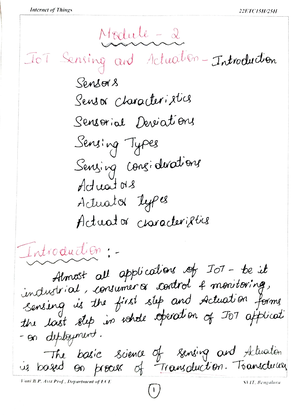 Internet of Things 22ETC15H/25H
Module - 2
IoT Sensing and Actuation - Introduction
Sensors
Sensor characteristics
Sensorial Deviations
Sensing Types
Sensing Considerations
Actuators
Actuator Types
Actuator characteristics
Introduction :-
Almost all applications of IoT - be it
industrial, consumer or control & monitoring,
Sensing is the first step and Actuation forms
the last step in whole operation of IoT applicat
-on deployment.
The basic science of sensing and Actuation
is based on process of Transduction. Transduction
B.P, Asst Prof, Department of ECE Bengaluru
1